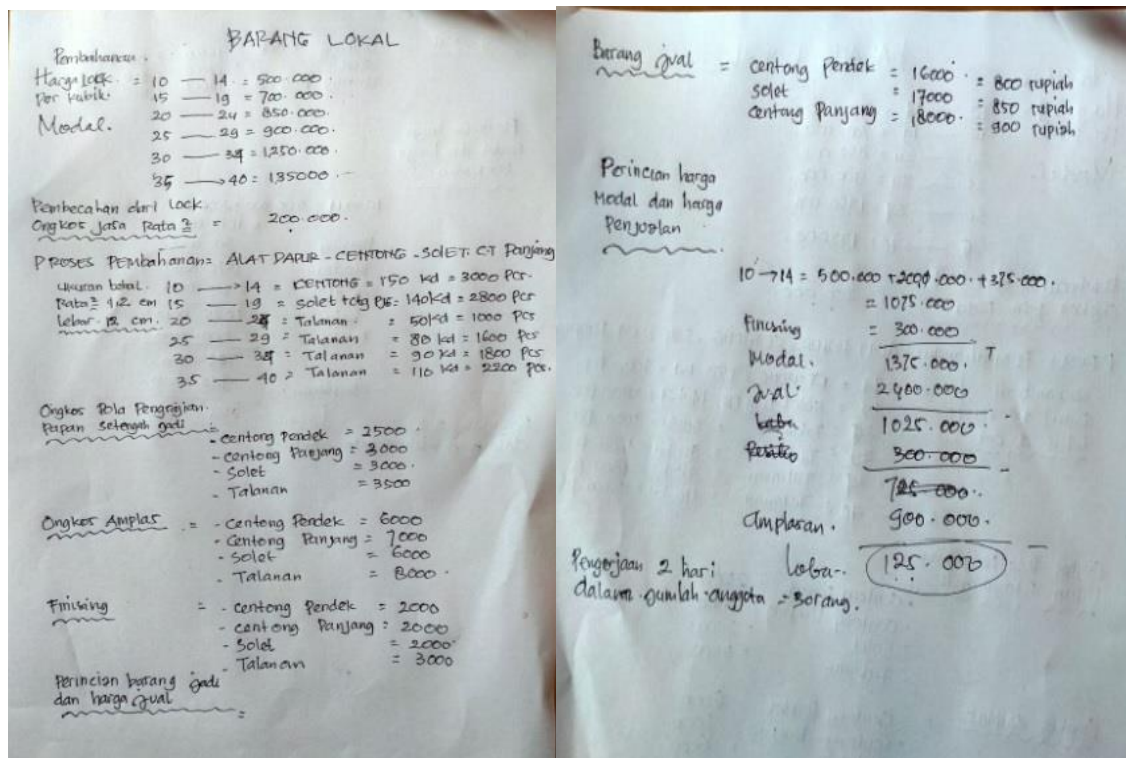 BARANG LOKAL
Pembahanan.
Harga Lock. = 10 — 14 = 500.000
Per kubik. 15 — 19 = 700.000.
Modal. 20 — 24 = 850.000.
25 — 29 = 900.000.
30 — 34 = 1,250.000.
35 → 40 = 1,35000.
Pembecahan dari Lock.
Ongkos Jasa Rata2 = 200.000.
PROSES PEMBAHANAN = ALAT DAPUR - CENTONG - SOLET. CT Panjang
ukuran 10 → 14 = CENTONG = 150 kd = 3000 Pcs.
Rata2 1,2 cm 15 — 19 = Solet + ctg = 140 Kd = 2800 Pcs
Lebar. 12 cm. 20 — 24 = Talanan. = 50 Kd = 1000 Pcs
25 — 29 = Talanan = 80 kd = 1600 Pcs
30 — 34 = Talanan = 90 Kd = 1800 Pcs
35 — 40 = Talanan = 110 Kd = 2200 Pcs.
Ongkos Pola
Papan setengah jadi = - centong Pendek = 2500
- centong Panjang = 3000
- Solet = 3000.
- Talanan = 3500
Ongkos Amplas = - Centong Pendek = 6000
- Centong Panjang = 7000
- Solet = 6000
- Talanan = 8000.
Finising = - centong Pendek = 2000
- centong Panjang = 2000
- Solet = 2000
- Talanan = 3000
Perincian barang jadi
dan harga jual =
Barang jual = centong Pendek = 16000. = 800 rupiah
solet = 17000 = 850 rupiah
centong Panjang = 18000. = 900 rupiah
Perincian harga
Modal dan harga
Penjualan
10 → 14 = 500.000 + 2000.000. + 375.000.
= 1075.000
Finising = 300.000
Modal. 1375.000. T
Jual 2400.000
Laba 1025.000.
300.000
725.000.
Amplasan. 900.000.
Laba. 125.000
Pengerjaan 2 hari
dalam jumlah anggota = 3 orang.